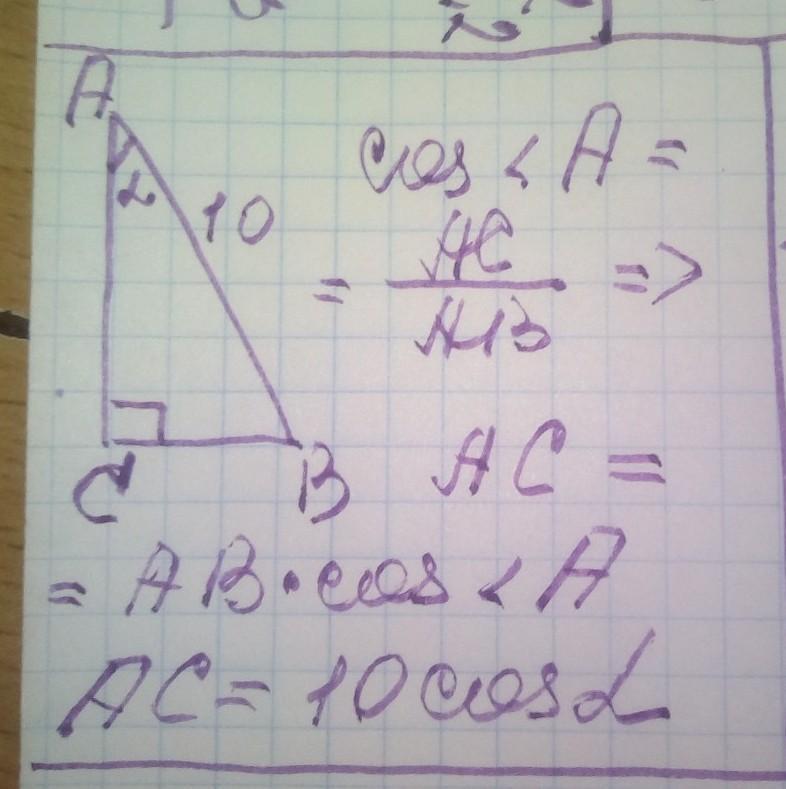 A
α
10
C
B
cos < A =
= AC / AB =>
AC =
= AB · cos < A
AC = 10 cos α